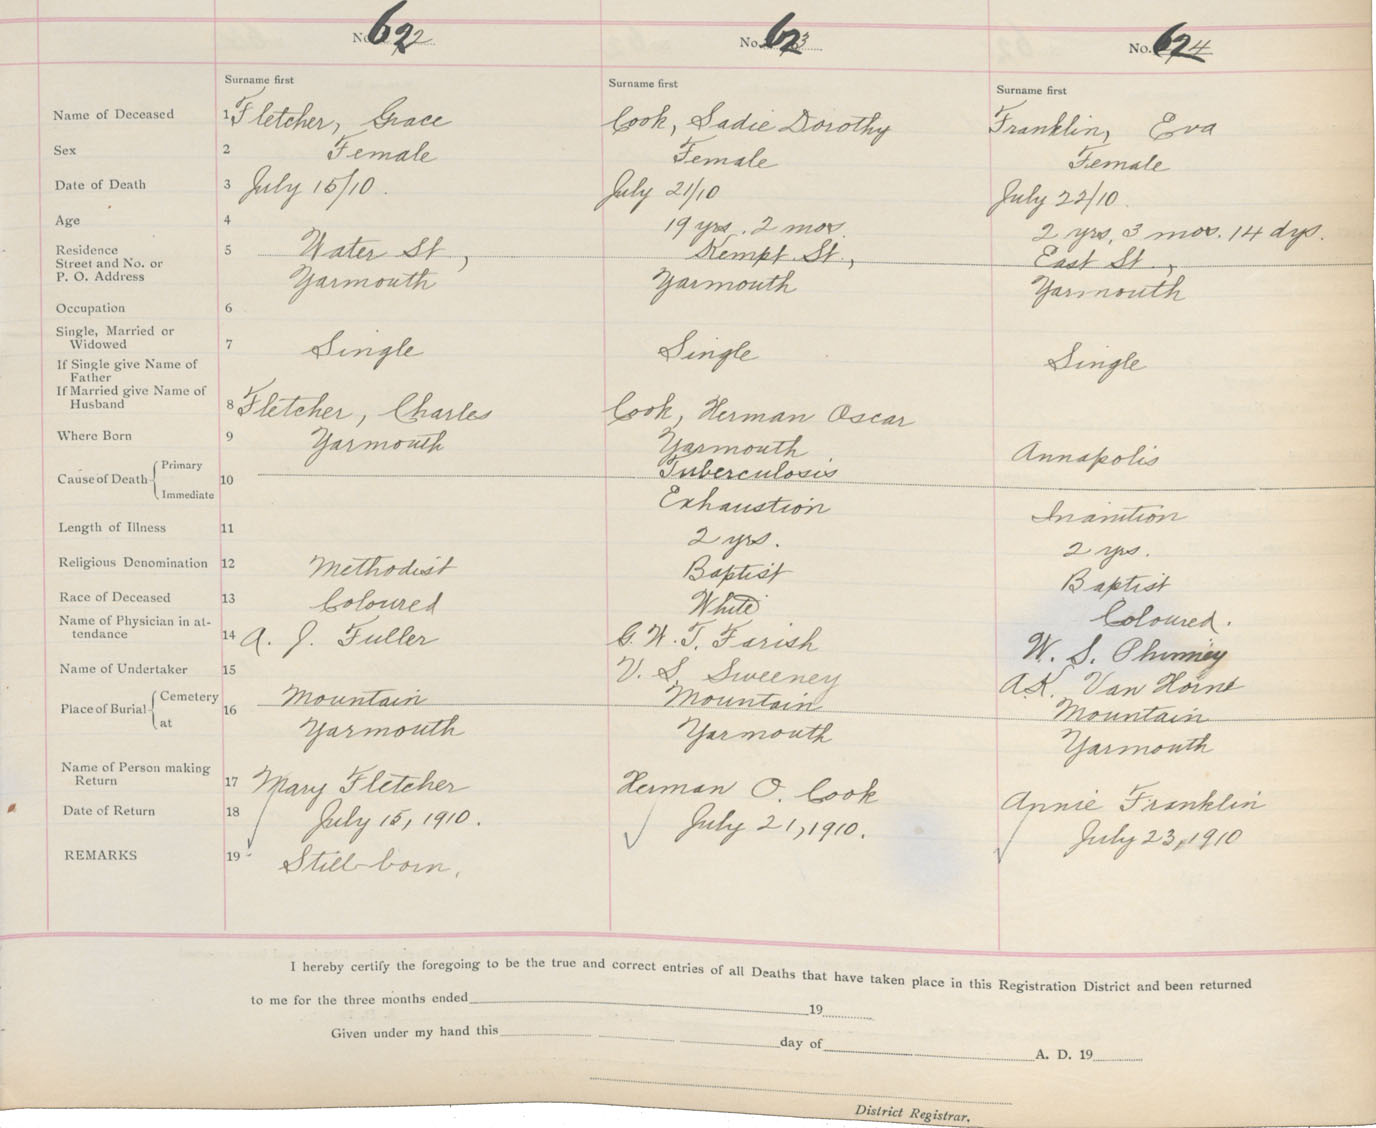 No. 622 No. 623 No. 624
Surname first Surname first Surname first
Name of Deceased 1 Fletcher, Grace Cook, Sadie Dorothy Franklin, Eva
Sex 2 Female Female Female
Date of Death 3 July 15/10. July 21/10 July 22/10.
Age 4 19 yrs. 2 mos. 2 yrs, 3 mos. 14 dys.
Residence 5 Water St., Kempt St., East St.,
Street and No. or
P. O. Address Yarmouth Yarmouth Yarmouth
Occupation 6
Single, Married or
Widowed 7 Single Single Single
If Single give Name of
Father
If Married give Name of
Husband 8 Fletcher, Charles Cook, Herman Oscar
Where Born 9 Yarmouth Yarmouth Annapolis
Cause of Death Primary 10 Tuberculosis
Immediate Exhaustion Inanition
Length of Illness 11 2 yrs. 2 yrs.
Religious Denomination 12 Methodist Baptist Baptist
Race of Deceased 13 Coloured White Coloured.
Name of Physician in at-
tendance 14 A. J. Fuller G. W. T. Farish W. S. Phinney
Name of Undertaker 15 V. S. Sweeney A.K. Van Horne
Place of Burial Cemetery 16 Mountain Mountain Mountain
at Yarmouth Yarmouth Yarmouth
Name of Person making
Return 17 Mary Fletcher Herman O. Cook Annie Franklin
Date of Return 18 July 15, 1910. July 21, 1910. July 23, 1910
REMARKS 19 Still-born.
I hereby certify the foregoing to be the true and correct entries of all Deaths that have taken place in this Registration District and been returned
to me for the three months ended 19
Given under my hand this day of A. D. 19
District Registrar.